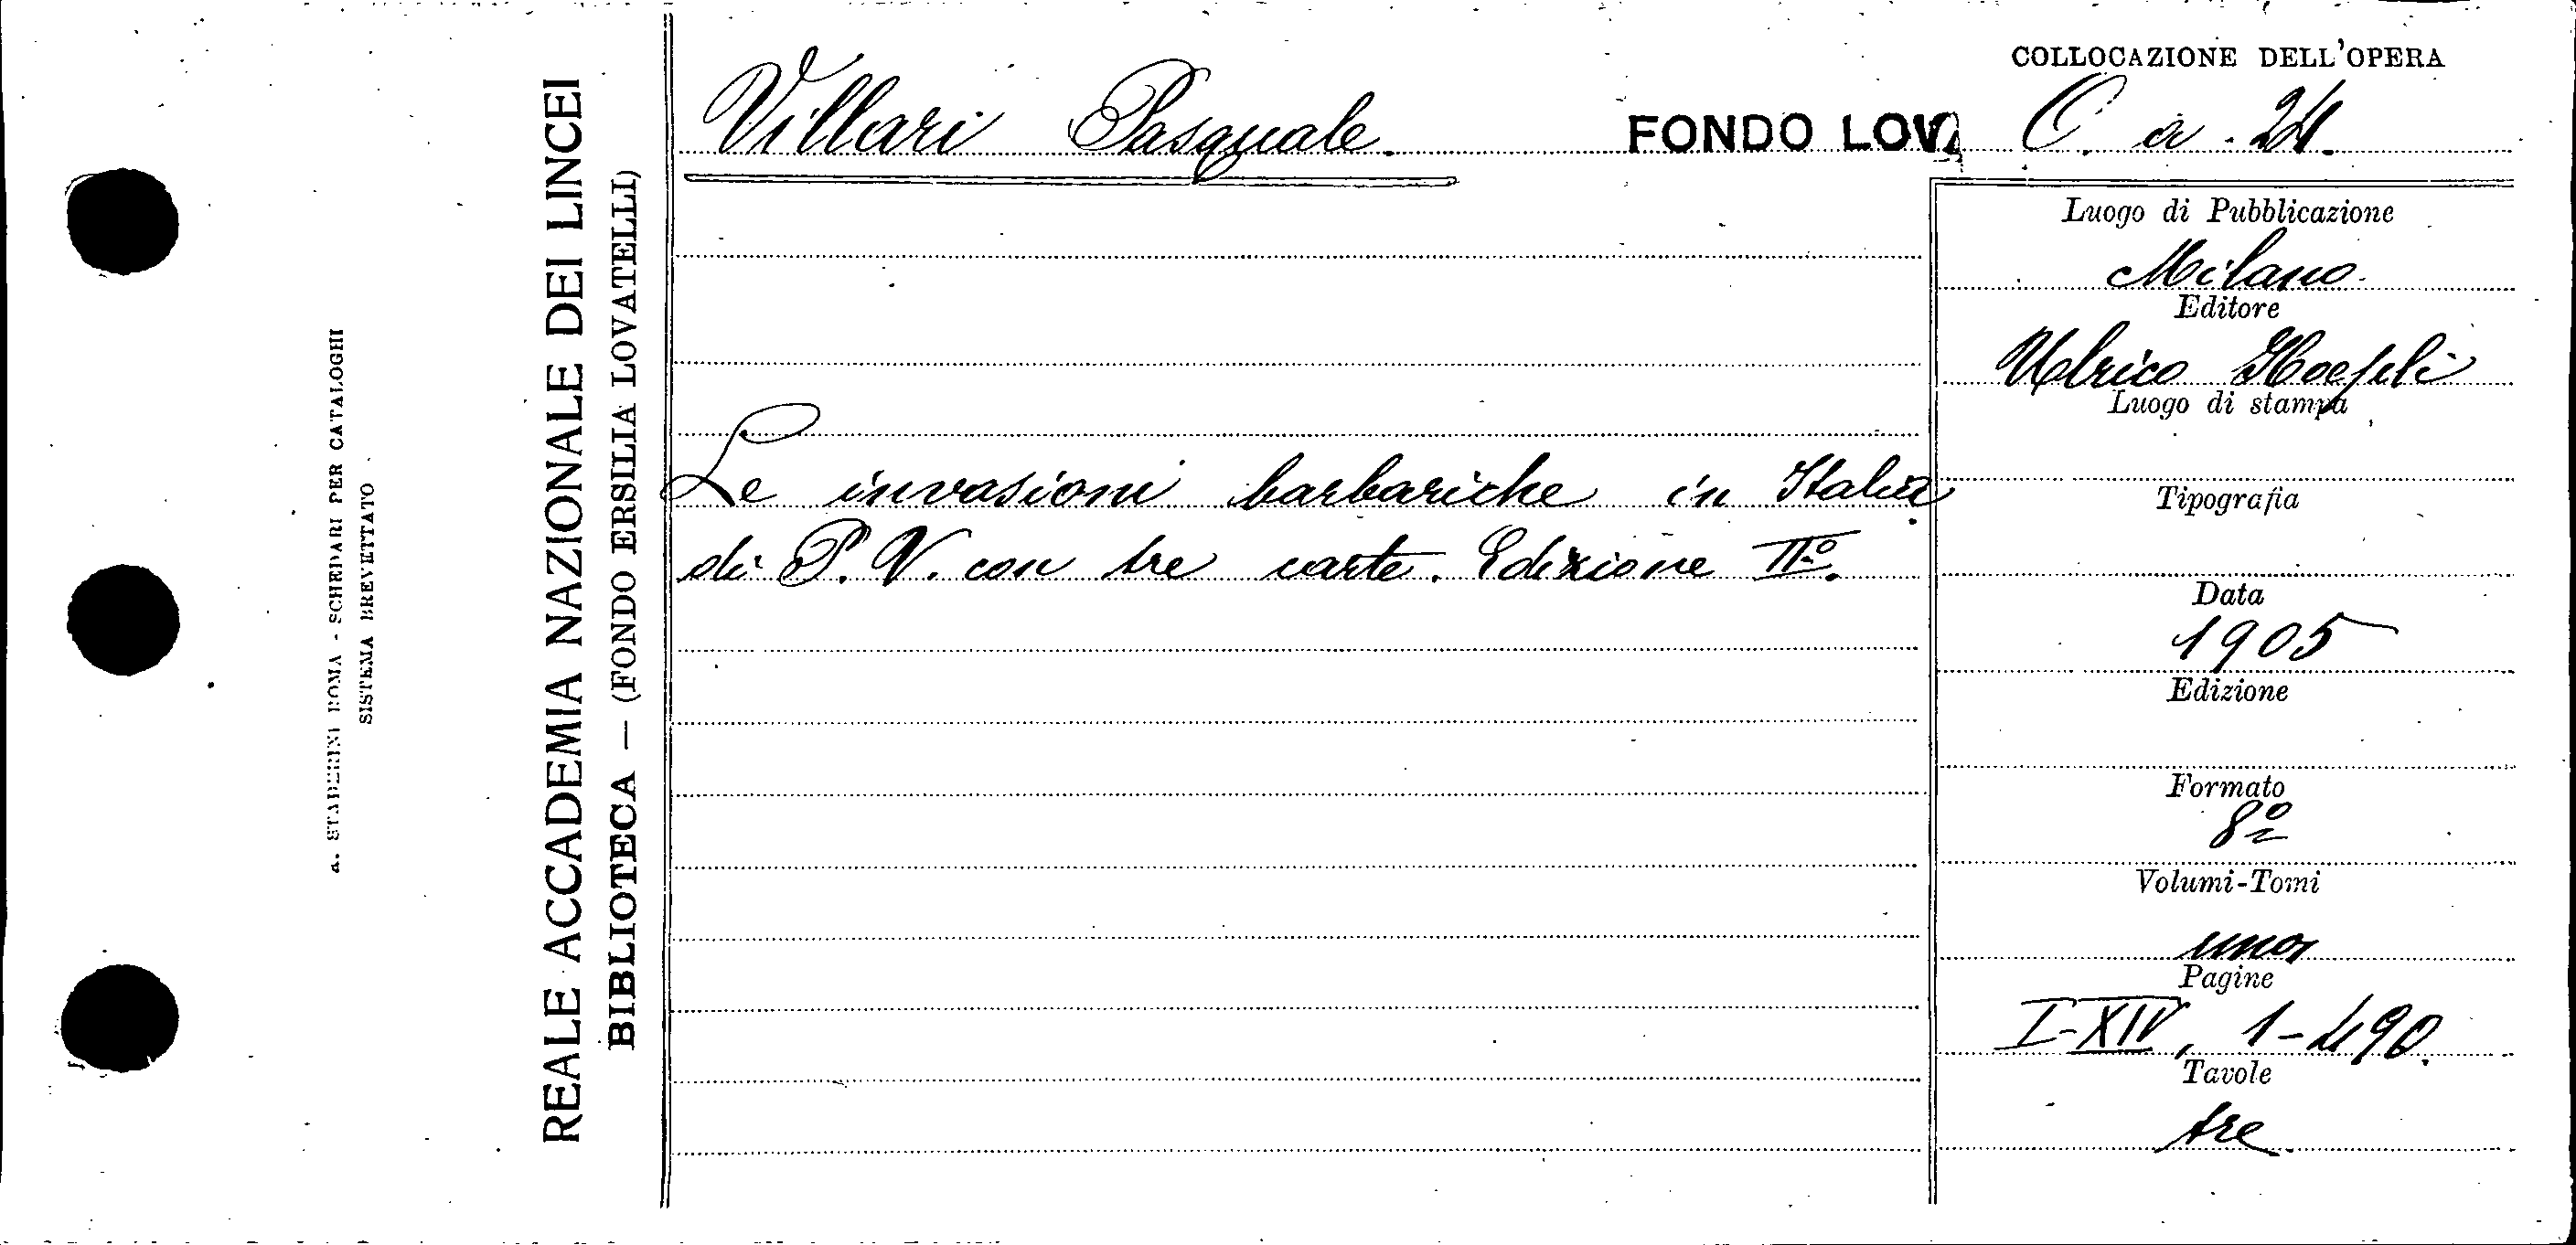 A. STADERINI ROMA - SCHEDARI PER CATALOGHI
SISTEMA BREVETTATO
REALE ACCADEMIA NAZIONALE DEI LINCEI
BIBLIOTECA — (FONDO ERSILIA LOVATELLI)
Villari Pasquale.
FONDO LOVA
Le invasioni barbariche in Italia
di P. V. con tre carte. Edizione IIº.
COLLOCAZIONE DELL'OPERA
C. a. 24.
Luogo di Pubblicazione
Milano
Editore
Ulrico Hoepli
Luogo di stampa
Tipografia
Data
1905
Edizione
Formato
8º
Volumi-Tomi
uno
Pagine
I-XIV, 1-490.
Tavole
tre